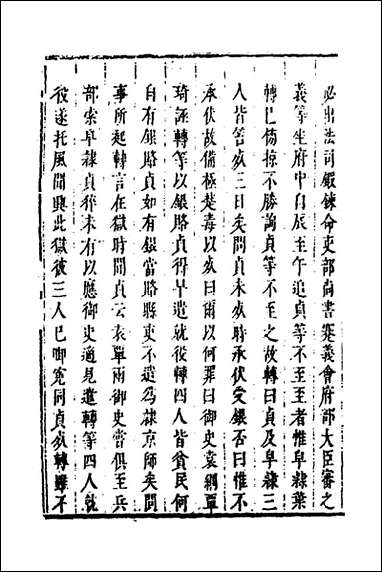 必出法司鍛鍊命吏部尚書蹇義會府部大臣審之
義等坐府中自辰至午追貞等不至至者惟皁隷葉
轉已傷掠不勝詢貞等不至之故轉曰貞及皁隷三
人皆笞死三日矣問貞未死時承伏受銀否曰惟不
承伏故備極楚毒以死曰爾以何罪曰御史袁綱覃
珩誣轉等以銀賂貞得早遣就役轉四人皆貧民何
自有銀賂貞如有銀當賂縣吏不遣爲隷京師矣問
事所起轉言在獄時聞貞云袁覃兩御史嘗俱至兵
部索皁隷貞猝未有以應御史適見遣轉等四人就
彼遂托風聞興此獄彼三人已啣寃同貞死轉雖不